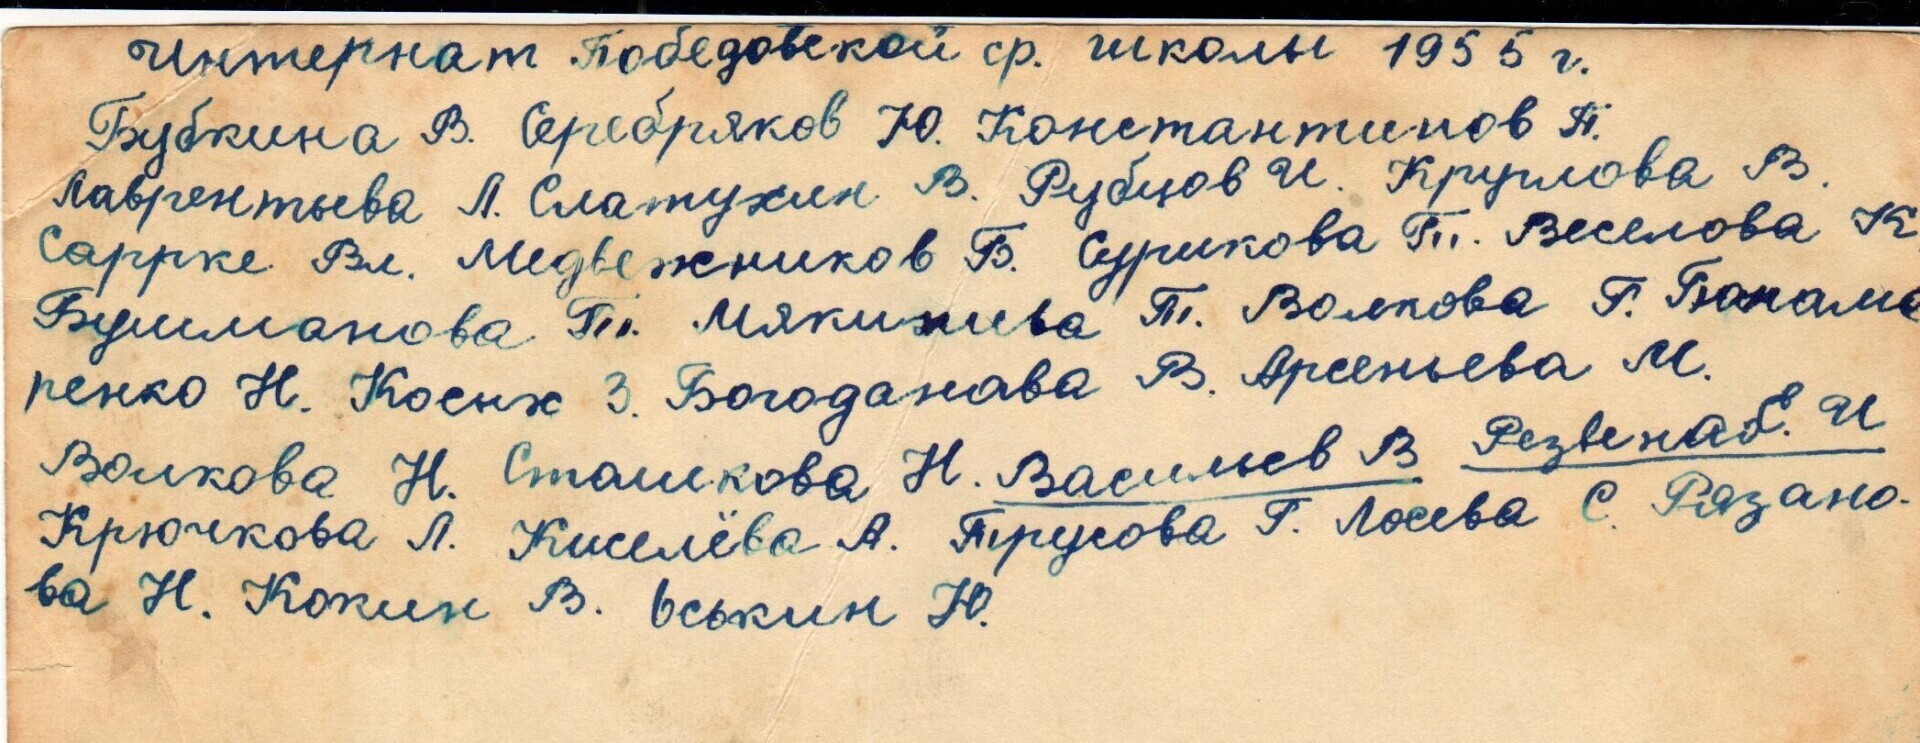 Интернат Победовской ср. школы 1955 г.
Бубкина В. Серебряков Ю. Константинов П.
Лаврентьева Л. Слатухин В. Рубцов И. Круглова В.
Саррке Вл. Медвежников Б. Сурикова Т. Веселова К
Бушманова Т. Мякишева Т. Волкова Г. Понама
ренко Н. Косых З. Богоданава В. Арсеньева М.
Волкова Н. Сташкова Н. Васильев В И
Крючкова Л. Киселёва А. Трусова Г. Лосева С. Рязано-
ва Н. Кокин В. Юськин Ю.